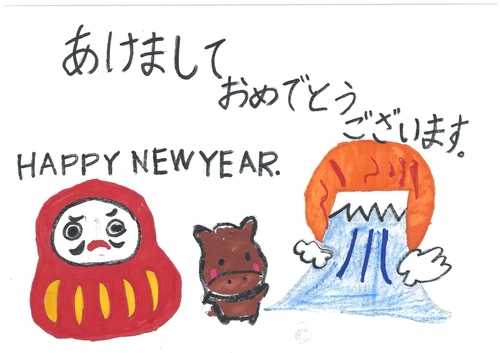 あけまして
おめでとう
ございます。
HAPPY NEW YEAR.